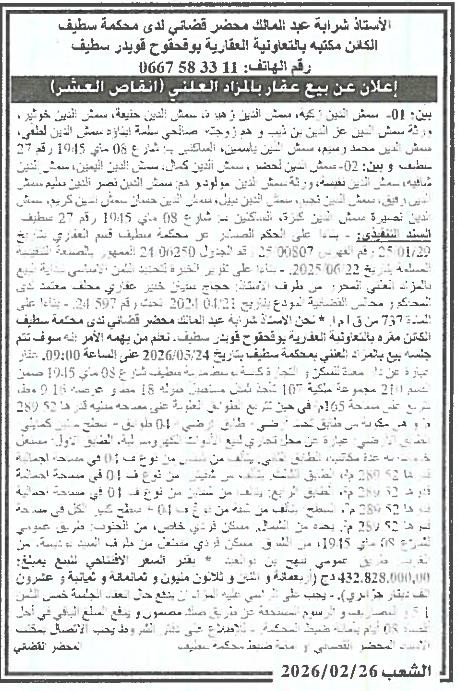 الأستاذ شرابة عبد المالك محضر قضائي لدى محكمة سطيف
الكائن مكتبه بالتعاونية العقارية بوقحفوح قويدر سطيف
رقم الهاتف: 11 33 58 0667
إعلان عن بيع عقار بالمزاد العلني (انقاص العشر)
بين: 01- سمش الدين زكية، سمش الدين زهيرة، سمش الدين
ورثة سمش الدين عز الدين بن ذيب و هم زوجته صالحي سلمة أبناؤه سمش الدين لطفي،
سمش الدين محمد رسيم، سمش الدين ياسمين، الساكنين بـ شارع 08 ماي 1945 رقم 27
سطيف و بين: 02- سمش الدين لخضر، سمش الدين كمال، سمش الدين اليمين، سمش الدين
سمش الدين نفيسة، ورثة سمش الدين مولود و هم: سمش الدين نصر الدين سليم سمش
الدين رفيق، سمش الدين نجيم، سمش الدين نبيل، سمش الدين حسان سمش الدين كريم، سمش
الدين نصيرة سمش الدين كنزة، الساكنين بـ شارع 08 ماي 1945 رقم 27 سطيف
السند التنفيذي: - بناءا على الحكم الصادر عن محكمة سطيف قسم العقاري بتاريخ
25/01/29 رقم الفهرس 25/00807 رقم الجدول 24/06250 الممهور بالصيغة التنفيذية
المسلمة بتاريخ 2025/06/22 - بناءا على تقرير الخبرة لتحديد الثمن الأساسي بداية البيع
بالمزاد العلني المحرر من طرف الأستاذ: حجاج سفيان خبير عقاري محلف معتمد لدى
المحاكم و مجالس القضائية المودع بتاريخ 2024/04/21 تحت رقم 24/597 - بناءا على
المادة 737 من ق إ م إ * نحن الأستاذ شرابة عبد المالك محضر قضائي لدى محكمة سطيف
الكائن مقره بالتعاونية العقارية بوقحفوح قويدر سطيف. نعلم من يهمه الأمر أنه سوف تتم
جلسة بيع بالمزاد العلني بمحكمة سطيف بتاريخ 2026/03/24 على الساعة 09:00. عقار
عبارة عن دار معدة للسكن و التجارة كائنة بـ سطيف شارع 08 ماي 1945 ضمن
القسم 210 مجموعة ملكية 107 تأخذ شكل مستطيل طوله 18 متر و عرضه
تتربع على مساحة 165م² في حين تتربع الطوابق العلوية على مساحة مبنية قدرها 289.52
م² و هي مكونة من طابق تحت أرضي - طابق أرضي + 04 طوابق - سطح
الطابق الأرضي: عبارة عن محل تجاري لبيع الأدوات الكهرومنزلية، الطابق الأول: مستغل
الطابق الثاني: يتألف من شقتين من نوع ف 04 في مساحة اجمالية
قدرها 289.52 م²، الطابق الثالث: يتألف من شقتين من نوع ف 04 في مساحة اجمالية
قدرها 289.52 م²، الطابق الرابع: يتألف من شقتين من نوع ف 04 في مساحة اجمالية
قدرها 289.52 م²، السطح: يتألف من شقة من نوع ف 04 + سطح
يحده من الشمال: مسكن فردي خاص، من الجنوب: طريق عمومي
شارع 08 ماي 1945، من الشرق: مسكن فردي
الغرب: طريق عمومي نهج بن * بقدر السعر الافتتاحي للبيع بمبلغ:
432.828.000,00 دج (أربعمائة و اثنين و ثلاثون مليون و ثمانمائة و ثمانية و عشرون
ألف دينار جزائري). - يجب على الراسي عليه المزاد أن يدفع حال انعقاد الجلسة خمس الثمن
1/5 و المصاريف و الرسوم المستحقة عن طريق صك مضمون و يدفع المبلغ الباقي في أجل
أقصاه 08 أيام بأمانة ضبط المحكمة. - للاطلاع على دفتر الشروط يجب الاتصال بمكتب
الأستاذ المحضر القضائي و أمانة ضبط محكمة سطيف المحضر القضائي
الشعب 2026/02/26